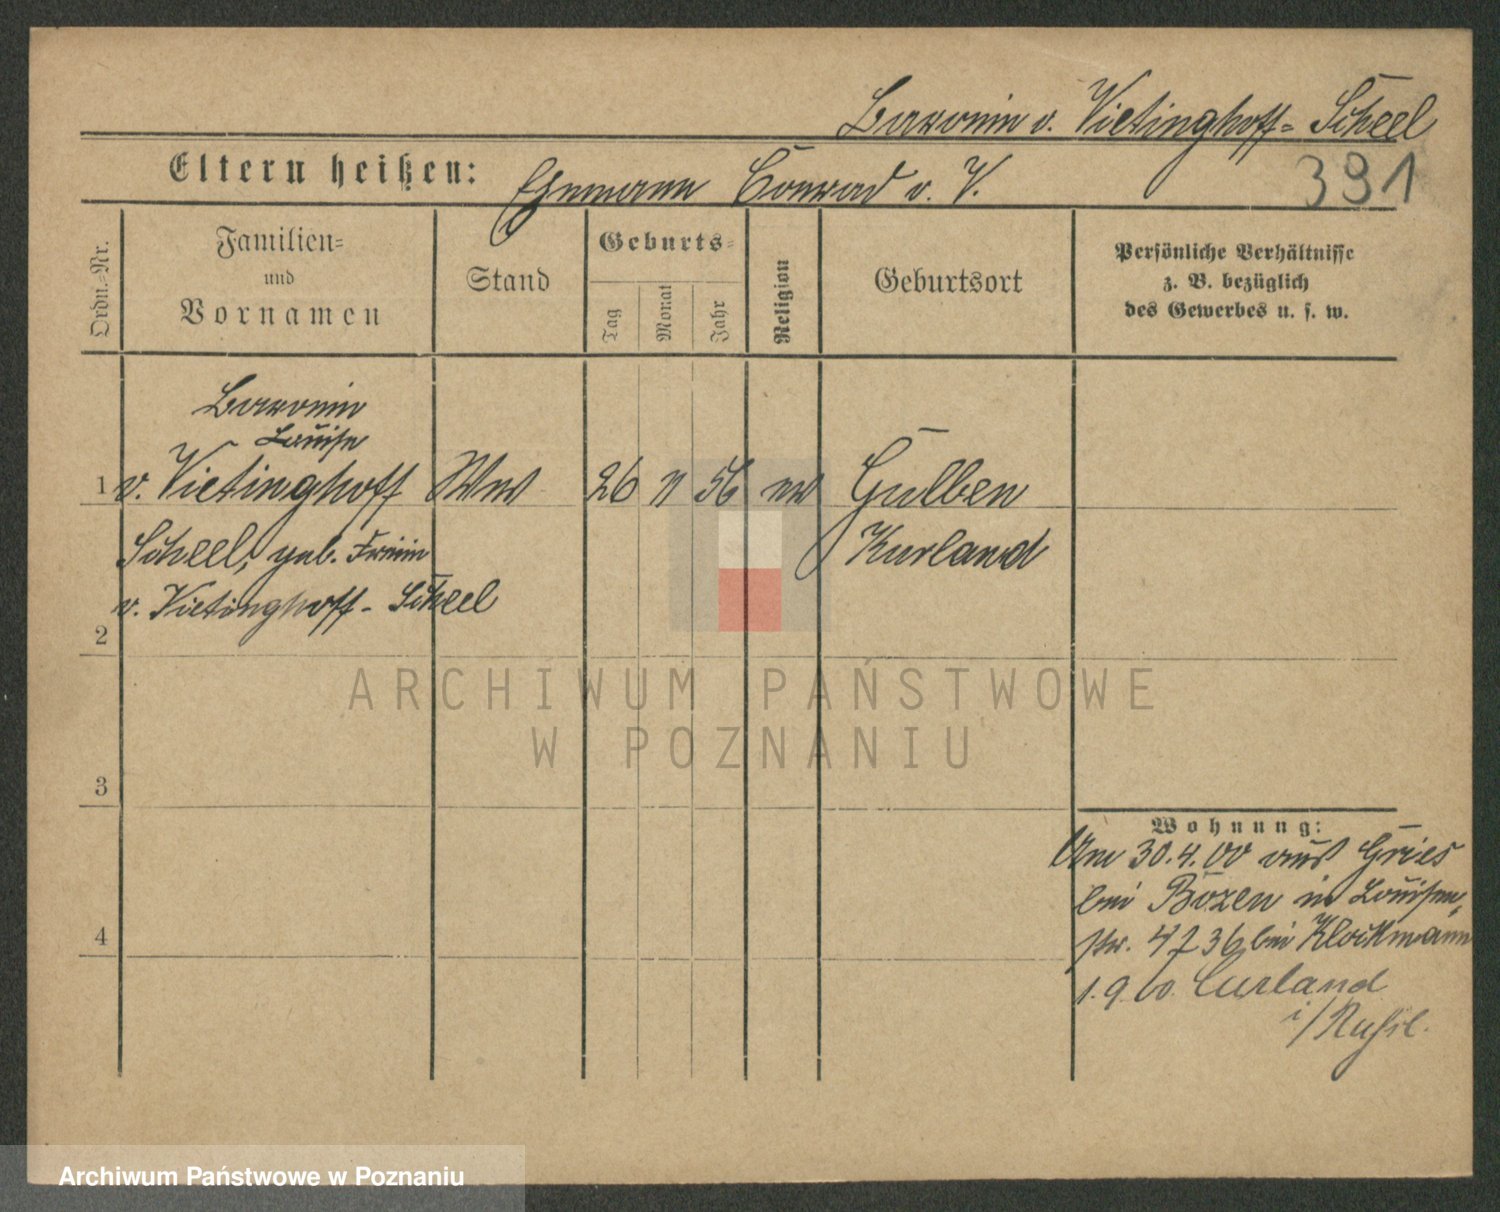 Baronin v. Vietinghoff-Scheel
Eltern heißen: Ehemann Conrad v. V.
391
Ordn.-Nr.
Familien-
und
Vornamen
Stand
Geburts-
Tag
Monat
Jahr
Religion
Geburtsort
Persönliche Verhältnisse
z. B. bezüglich
des Gewerbes u. s. w.
Baronin
Louise
1 v. Vietinghoff Wwe 26 56 ev Gulben
Scheel, geb. Freiin Kurland
v. Vietinghoff-Scheel
2
ARCHIWUM PAŃSTWOWE
W POZNANIU
3
Wohnung:
Am 30.4.00 aus Gries
bei Bozen in Louisen-
str. 4 7 36 bei Klockmann
4
1.9.00. Curland
i/Rußl.
Archiwum Państwowe w Poznaniu